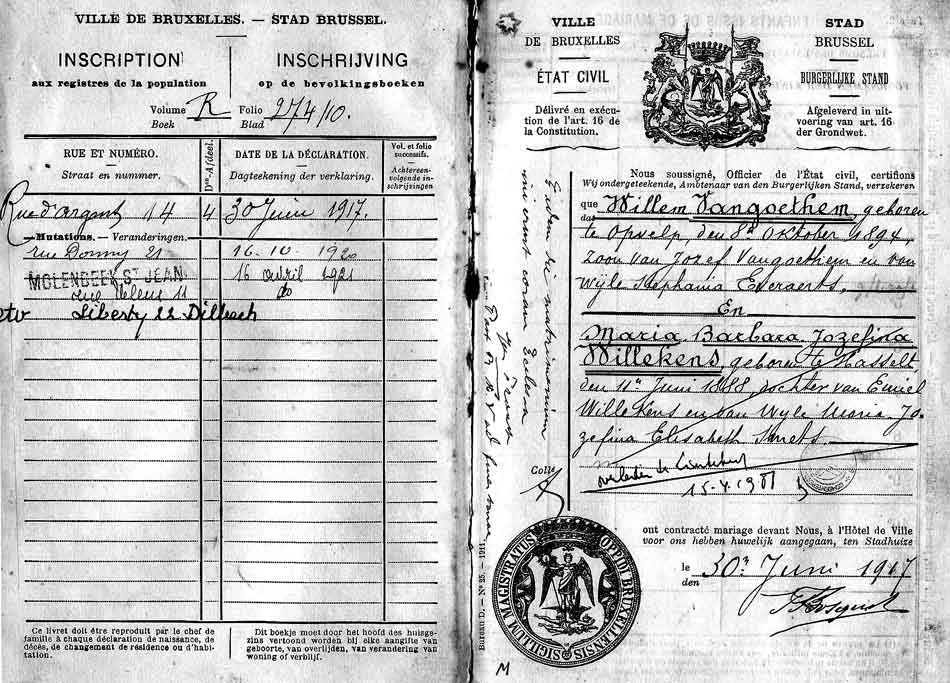 VILLE DE BRUXELLES. — STAD BRUSSEL.
INSCRIPTION
aux registres de la population
INSCHRIJVING
op de bevolkingsboeken
Volume R Folio 274/10.
Boek Blad
RUE ET NUMÉRO.
Straat en nummer.
Don-Afdeel.
DATE DE LA DÉCLARATION.
Dagteekening der verklaring.
Vol. et folio
successifs.
Achtereen-
volgende in-
schrijvingen
Rue d'argent 14 4 30 Juin 1917.
Mutations. — Veranderingen.
rue 21 16.10 1920
MOLENBEEK ST JEAN 16 avril 1921
rue 11 do
Liberty 22 Dilbeek
Ce livret doit être reproduit par le chef de
famille à chaque déclaration de naissance, de
décès, de changement de résidence ou d'habi-
tation.
Dit boekje moet door het hoofd des huisge-
zins vertoond worden bij elke aangifte van
geboorte, van overlijden, van verandering van
woning of verblijf.
Bureau D. — No 25. — 1911.
VILLE
DE BRUXELLES
ÉTAT CIVIL
Délivré en exécu-
tion de l'art. 16 de
la Constitution.
STAD
BRUSSEL
BURGERLIJKE STAND
Afgeleverd in uit-
voering van art. 16
der Grondwet.
Nous soussigné, Officier de l'État civil, certifions
Wij ondergeteekende, Ambtenaar van den Burgerlijken Stand, verzekeren
que Willem Vangoethem, geboren
dat
te Opvelp, den 8n Oktober 1894,
zoon van Jozef Vangoethem en van
Wyle Stephania Everaerts,
En
Maria Barbara Jozefina
Willekens geboren te Hasselt
den 11n Juni 1888, dochter van Emiel
Willekens en van Wyle Maria Jo-
zefina Elisabeth Smets.
overleden te
15-4-1981
Eodem die matrimonium
inierunt coram Ecclesia
Colle
ont contracté mariage devant Nous, à l'Hôtel de Ville
voor ons hebben huwelijk aangegaan, ten Stadhuize
le 30n Juni 1917
den
SIGILLUM MAGISTRATUS OPPIDI BRUXELLENSIS
M